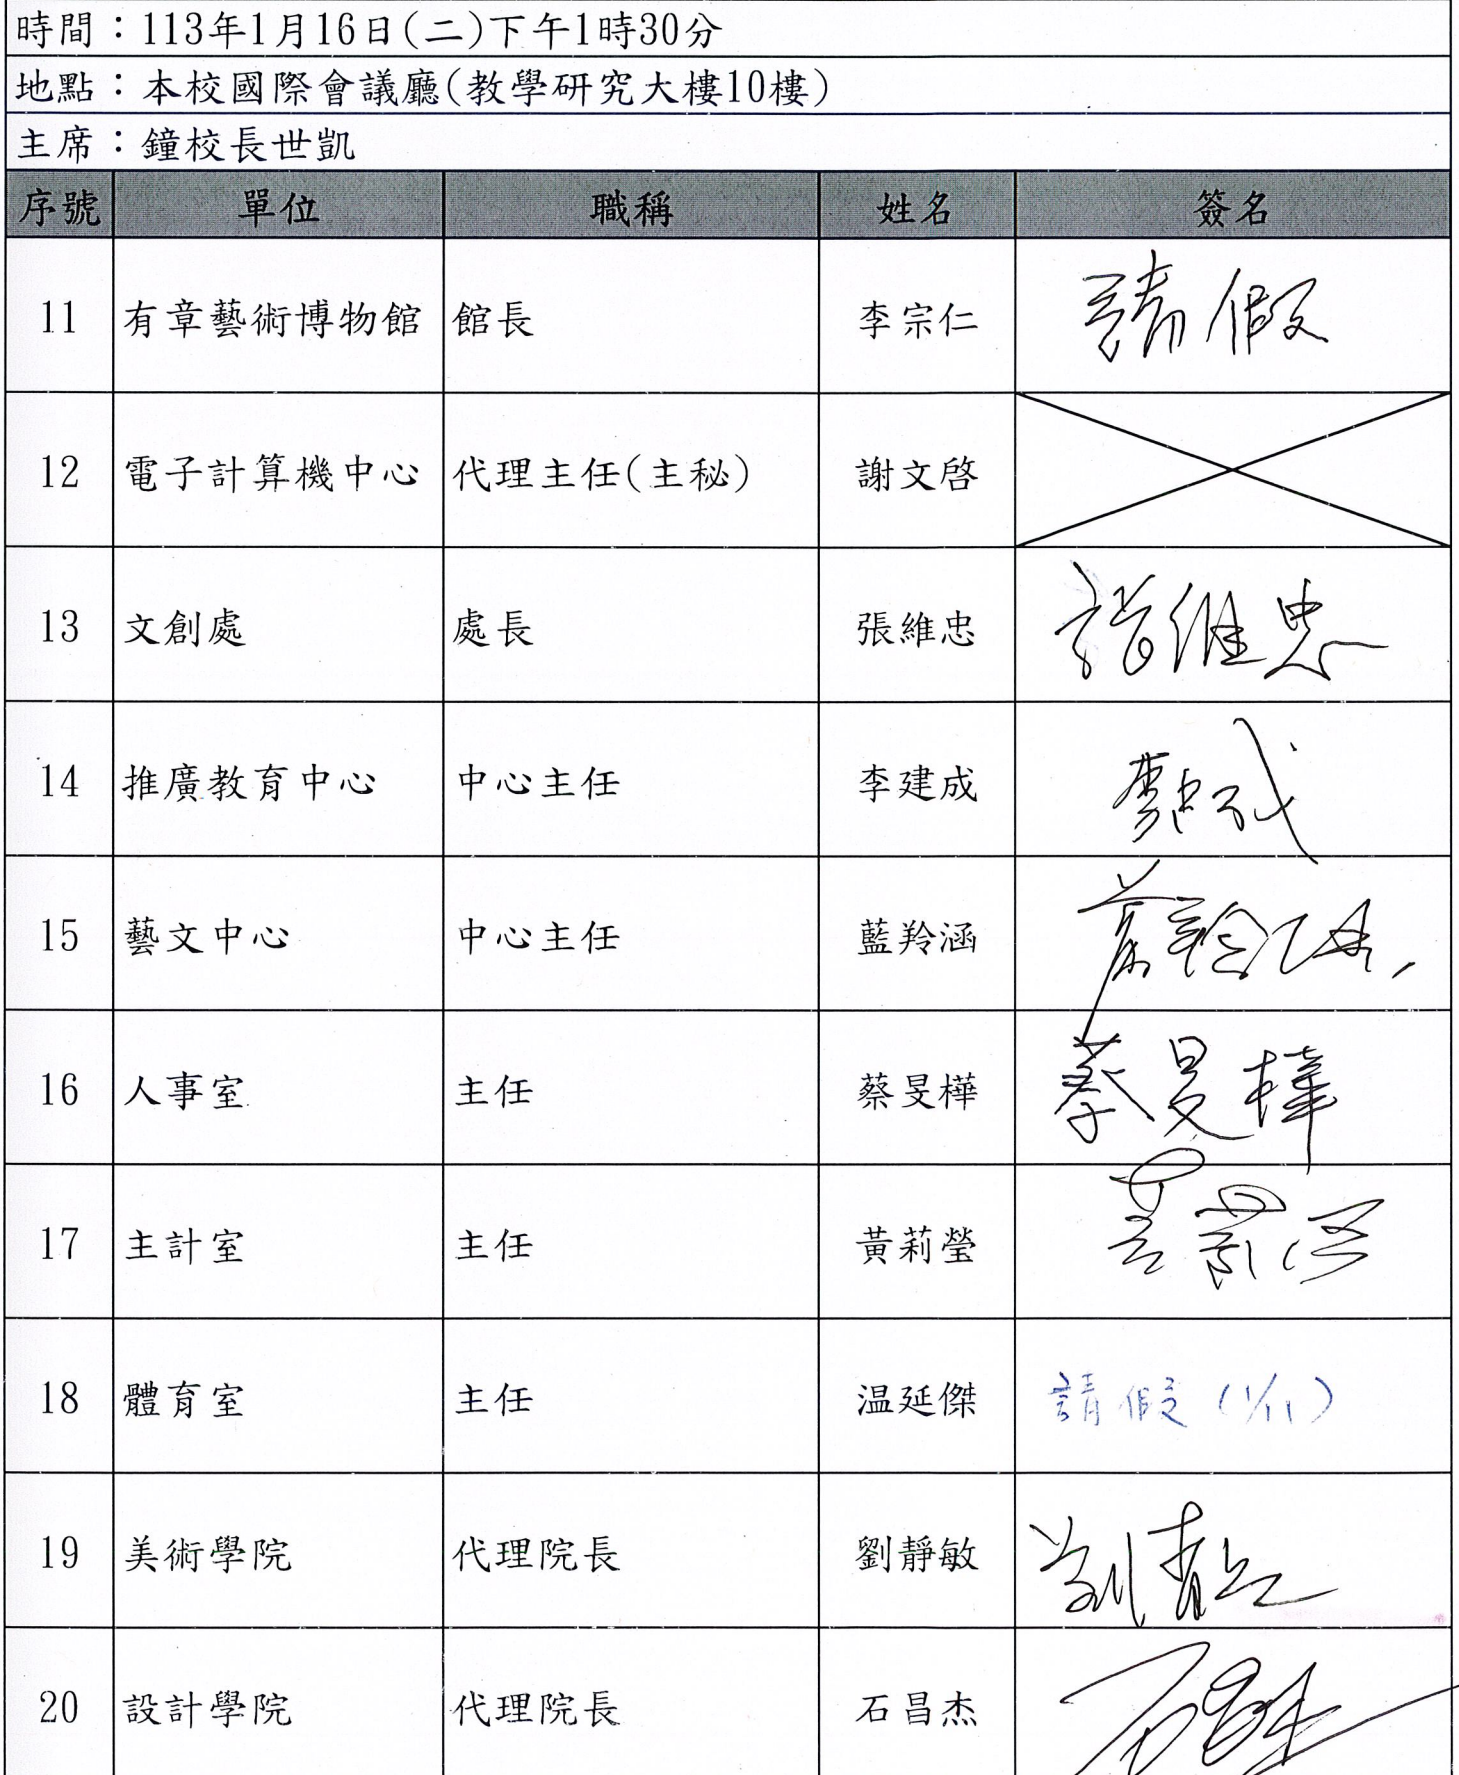 時間：113年1月16日(二)下午1時30分
地點：本校國際會議廳(教學研究大樓10樓)
主席：鐘校長世凱
序號 單位 職稱 姓名 簽名
11 有章藝術博物館 館長 李宗仁 請假
12 電子計算機中心 代理主任(主秘) 謝文啓
13 文創處 處長 張維忠 張維忠
14 推廣教育中心 中心主任 李建成 李建成
15 藝文中心 中心主任 藍羚涵 藍羚涵
16 人事室 主任 蔡旻樺 蔡旻樺
17 主計室 主任 黃莉瑩 黃莉瑩
18 體育室 主任 温延傑 請假(1/11)
19 美術學院 代理院長 劉靜敏 劉靜敏
20 設計學院 代理院長 石昌杰 石昌杰